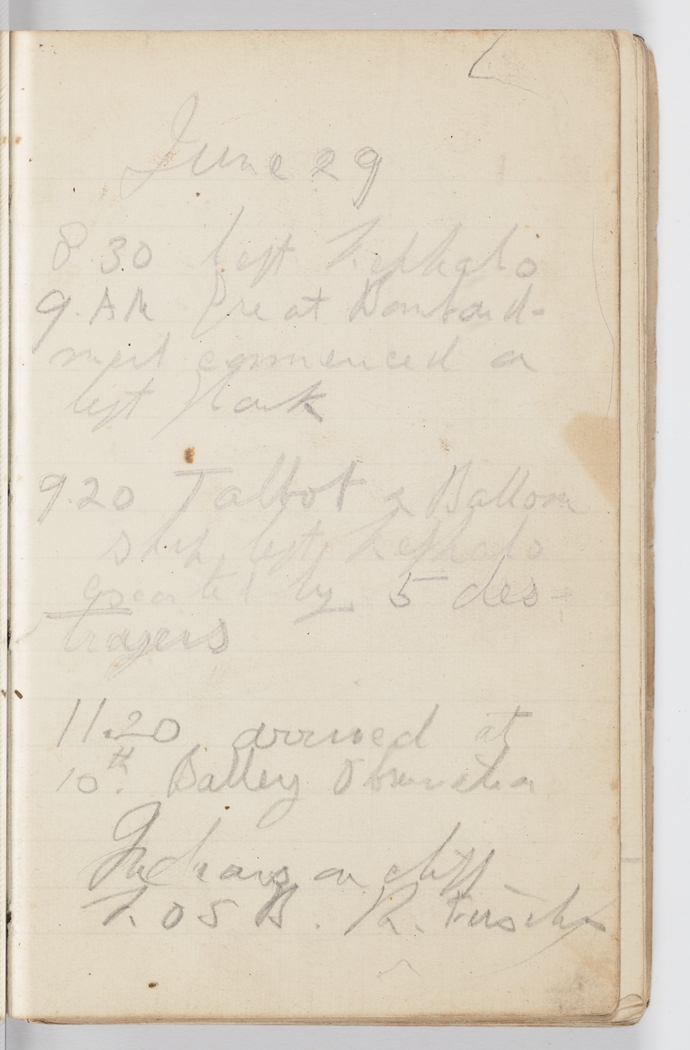 June 29
8.30 left Kephalo
9. AM Great Bombard-
ment commenced on
left flank
9.20 Talbot & Balloon
ship left Kephalo
escorted by 5 des-
troyers
11.20 arrived at
10th. Battery Observation
Indians on cliff